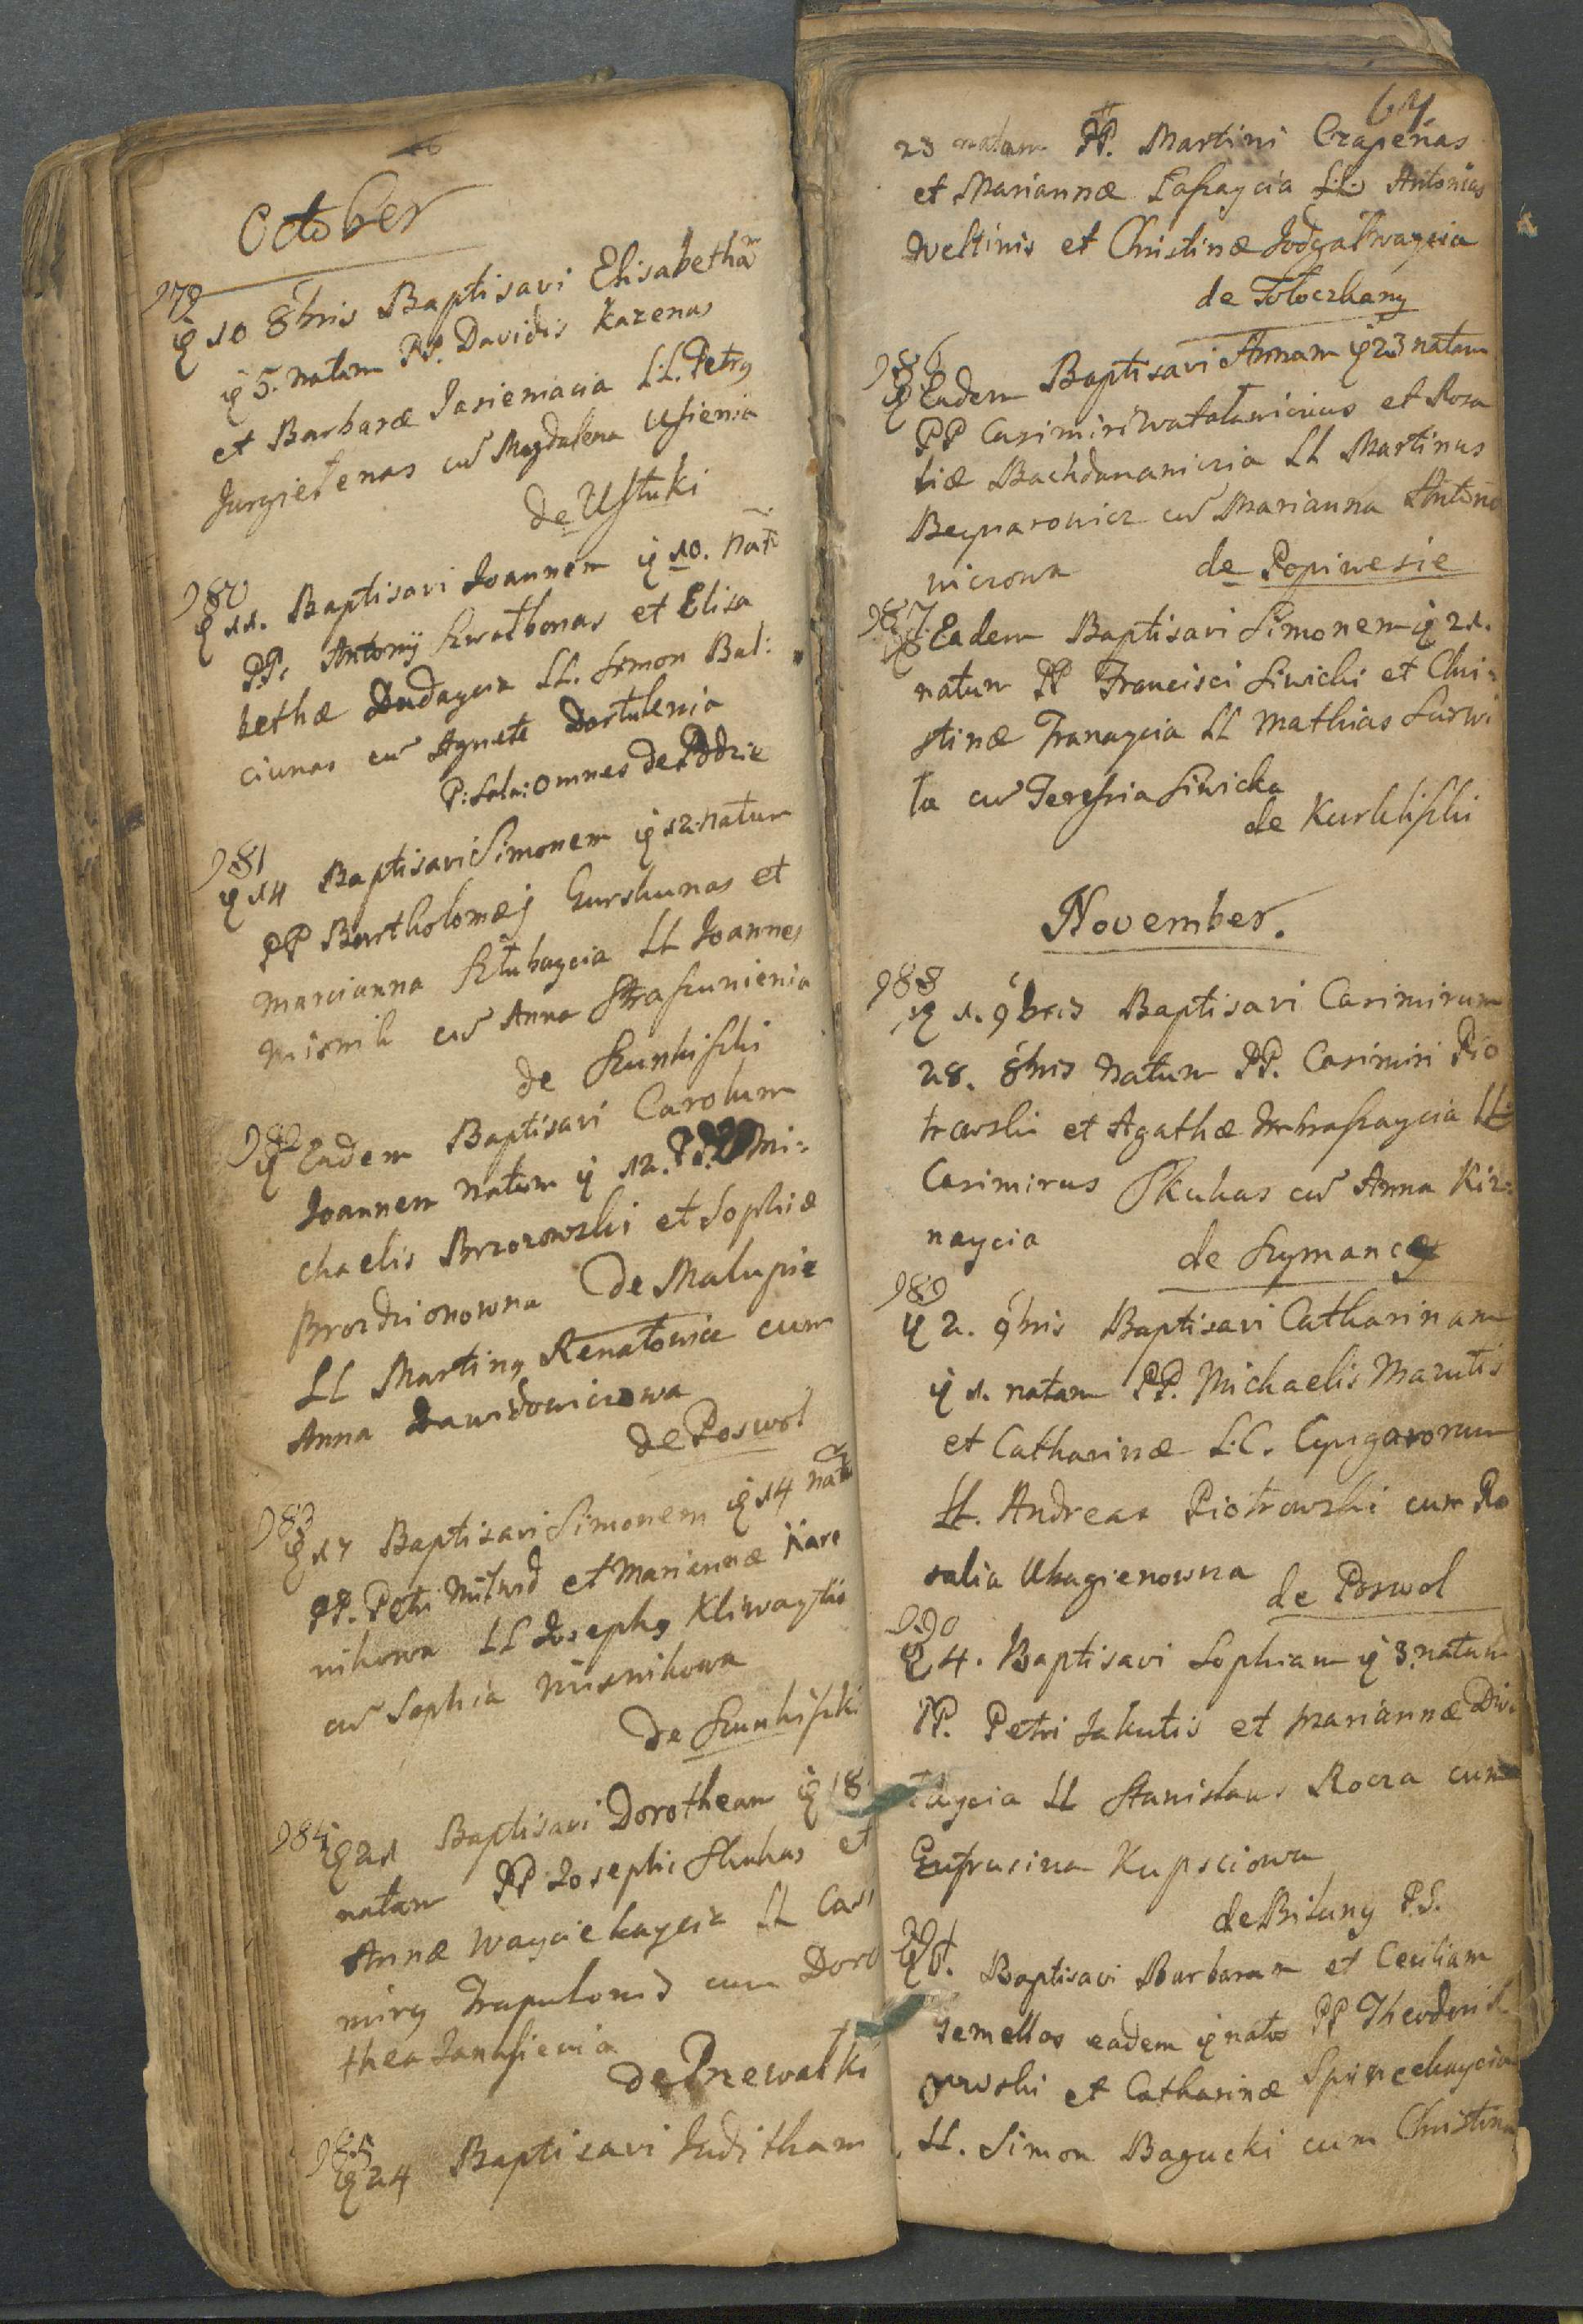 October
979
ių 10 8bris Baptisavi Elisabetham
ių 5. natam PP. Davidis Kazenas
et Barbaræ Jasiemacia LL. Petrg
Jurgielenas cū Magdalena Usienia
de Ustuki
980
ių 11. Baptisavi Joannem ių 10. nat
PP. Antonij Szwatbonas et Elisa
bethæ Dudaycia LL. Simon Bal:
ciunas cū Agneta Dartulenia
P: Sala: omnes de Podzie
981
ių 14 Baptisavi Simonem ių 12. natum
PP Bartholomæj Gurskunas et
Marianna Sztubaycia LL Joannes
Misnik cū Anna Straszunienia
de Szunkiszki
982
ių Eadem Baptisavi Carolum
Joannem natum ių 12. PP. Mi:
chaelis Brzozowski et Sophiæ
Brozdzionowna de Malupie
LL Marting Renatowicz cum
Anna Dawidowiczowa
de Poswol
983
ių 17 Baptisavi Simonem ių 14 nat
PP. Petri Milwid et Mariannæ Kare
nikowa LL Josephg Kliwaytis
cū Sophia Misnikowa
de Szunkiszki
984
ių 21 Baptisavi Dorotheam ių 18
natam PP Josephi Skukas et
Annæ Wayciekaycia LL Casi
mirg Trapulonis cum Doro
thea Jankienia
de Przewalki
985
ių 24 Baptisavi Juditham
64
23 natam PP. Martini Czapenas
et Mariannæ Laszaycia LL Antonius
Weltinis et Christinæ Jodgalwaycia
de Toloczkany
986
ių Eadem Baptisavi Annam ių 23 natam
PP Casimiri Watatawicius et Rosa
liæ Bachdananiczia LL Martinus
Beynarowicz cū Marianna Antono
wiczowa de Popiwesie
987
ių Eadem Baptisavi Simonem ių 21.
natum PP Francisci Siwicki et Chri=
stinæ Franaycia LL Mathias Surwi
ła cū Teressia Siwicka
de Kurkliszki
November.
988
ių 1. 9bris Baptisavi Casimirum
28. 8bris natum PP. Casimiri Pio
trowski et Agathæ LL
Casimirus Skukas cū Anna Kir:
naycia de Szymancy
989
ių 2. 9bris Baptisavi Catharinam
ių 1. natam PP. Michaelis Mazutis
et Catharinæ L.C. Cyngarorum
LL. Andreas Piotrowski cum Ro
salia Ukagienowna de Poswol
990
ių 4. Baptisavi Sophiam ių 3. natam
PP. Petri Jakutis et Mariannæ Dir
taycia LL Stanislaus Rocza cum
Eufrasina Kupsciowa
de Bituny P.S.
991
ių 6. Baptisavi Barbaram et Ceciliam
Jemellas eadem ių natas PP Theodori
et Catharinæ
LL. Simon Bagucki cum Christina